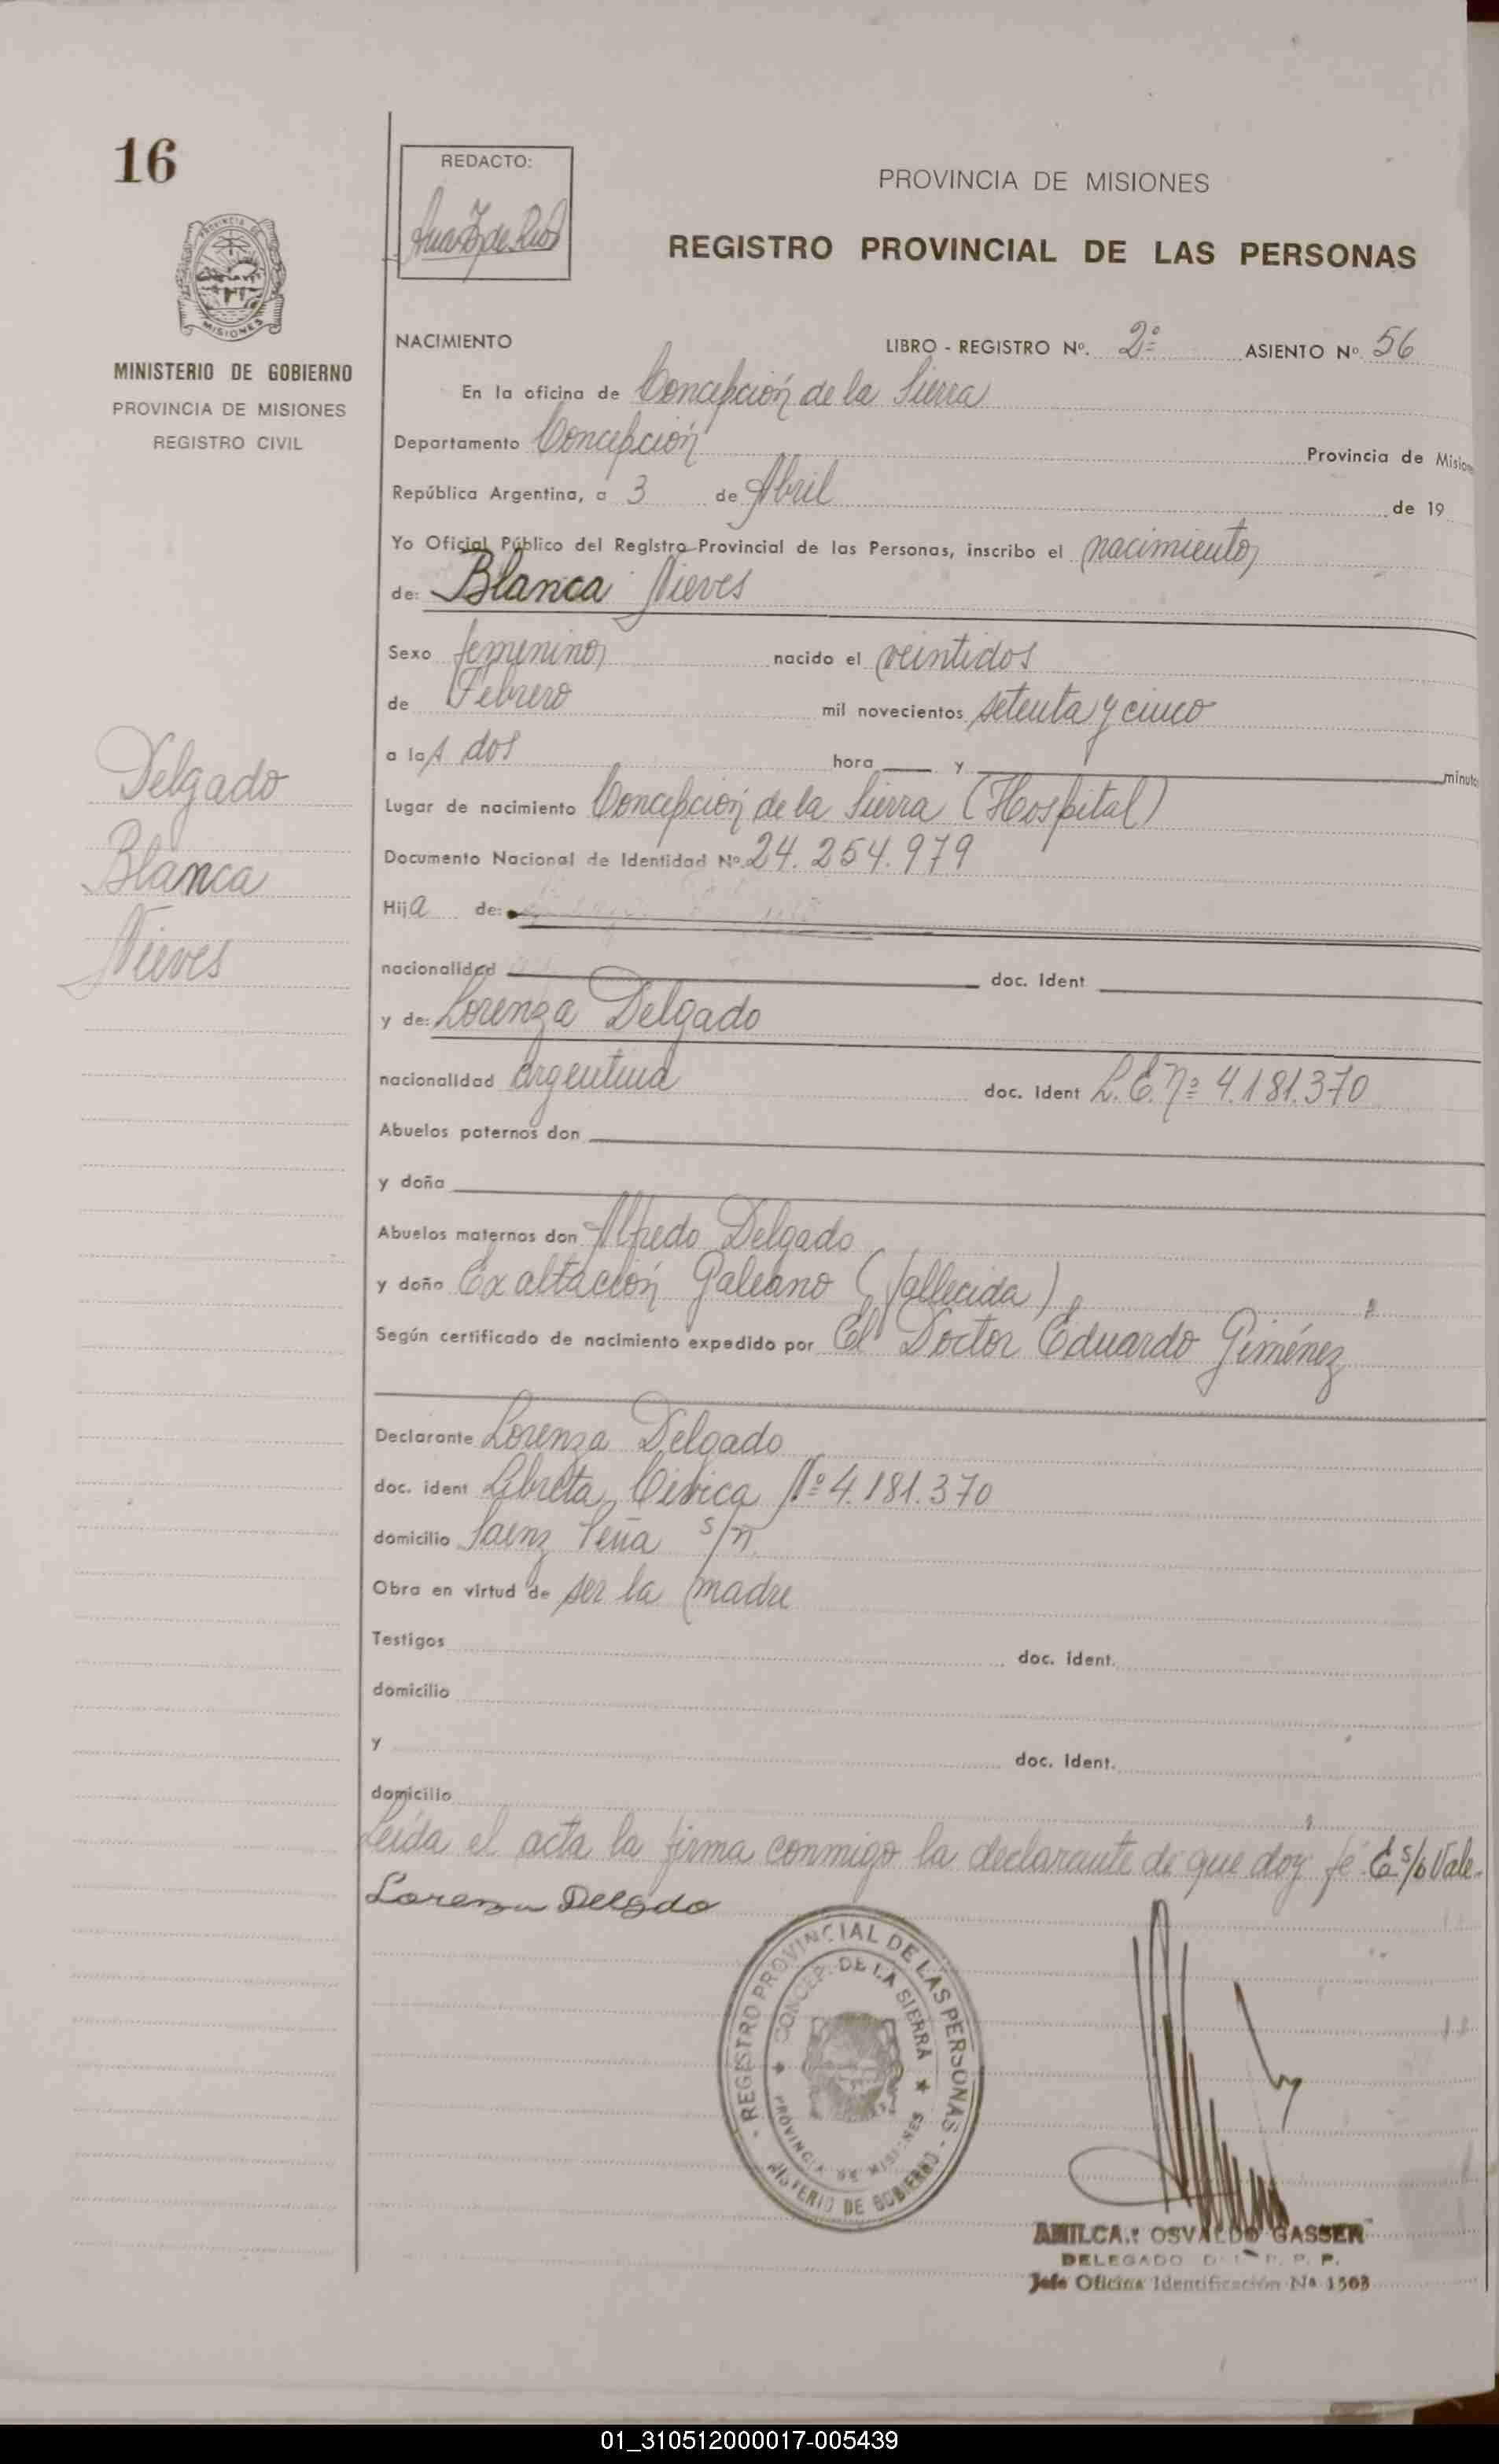 16
REDACTO:
PROVINCIA DE MISIONES
REGISTRO PROVINCIAL DE LAS PERSONAS
PROVINCIA DE
MISIONES
MINISTERIO DE GOBIERNO
PROVINCIA DE MISIONES
REGISTRO CIVIL
NACIMIENTO
LIBRO - REGISTRO Nº. 2º ASIENTO Nº 56
En la oficina de Concepción de la Sierra
Departamento Concepción Provincia de Mision
República Argentina, a 3 de Abril de 19
Yo Oficial Público del Registro Provincial de las Personas, inscribo el nacimiento
de: Blanca Nieves
Sexo femenino nacido el veintidos
de Febrero mil novecientos setenta y cinco
a las dos hora y minuto
Lugar de nacimiento Concepción de la Sierra (Hospital)
Documento Nacional de Identidad Nº. 24.254.979
Hija de:
nacionalidad doc. Ident
y de: Lorenza Delgado
nacionalidad argentina doc. Ident L.C. nº 4.181.370
Abuelos paternos don
y doña
Abuelos maternos don Alfredo Delgado
y doña Exaltación Galeano (fallecida)
Según certificado de nacimiento expedido por El Doctor Eduardo Giménez
Declarante Lorenza Delgado
doc. ident Libreta Cívica Nº 4.181.370
domicilio Saenz Peña s/n.
Obra en virtud de ser la madre
Testigos doc. ident.
domicilio
y doc. Ident.
domicilio
Leída el acta la firma conmigo la declarante de que doy fé E s/b Vale.
Lorenza Delgado
Delgado
Blanca
Nieves
- REGISTRO PROVINCIAL DE LAS PERSONAS -
CONCEP. DE LA SIERRA
PROVINCIA DE MISIONES
MINISTERIO DE GOBIERNO
AMILCA.: OSVALDO GASSER
DELEGADO
Jefe Oficina Identificación Nº 1503
01_310512000017-005439